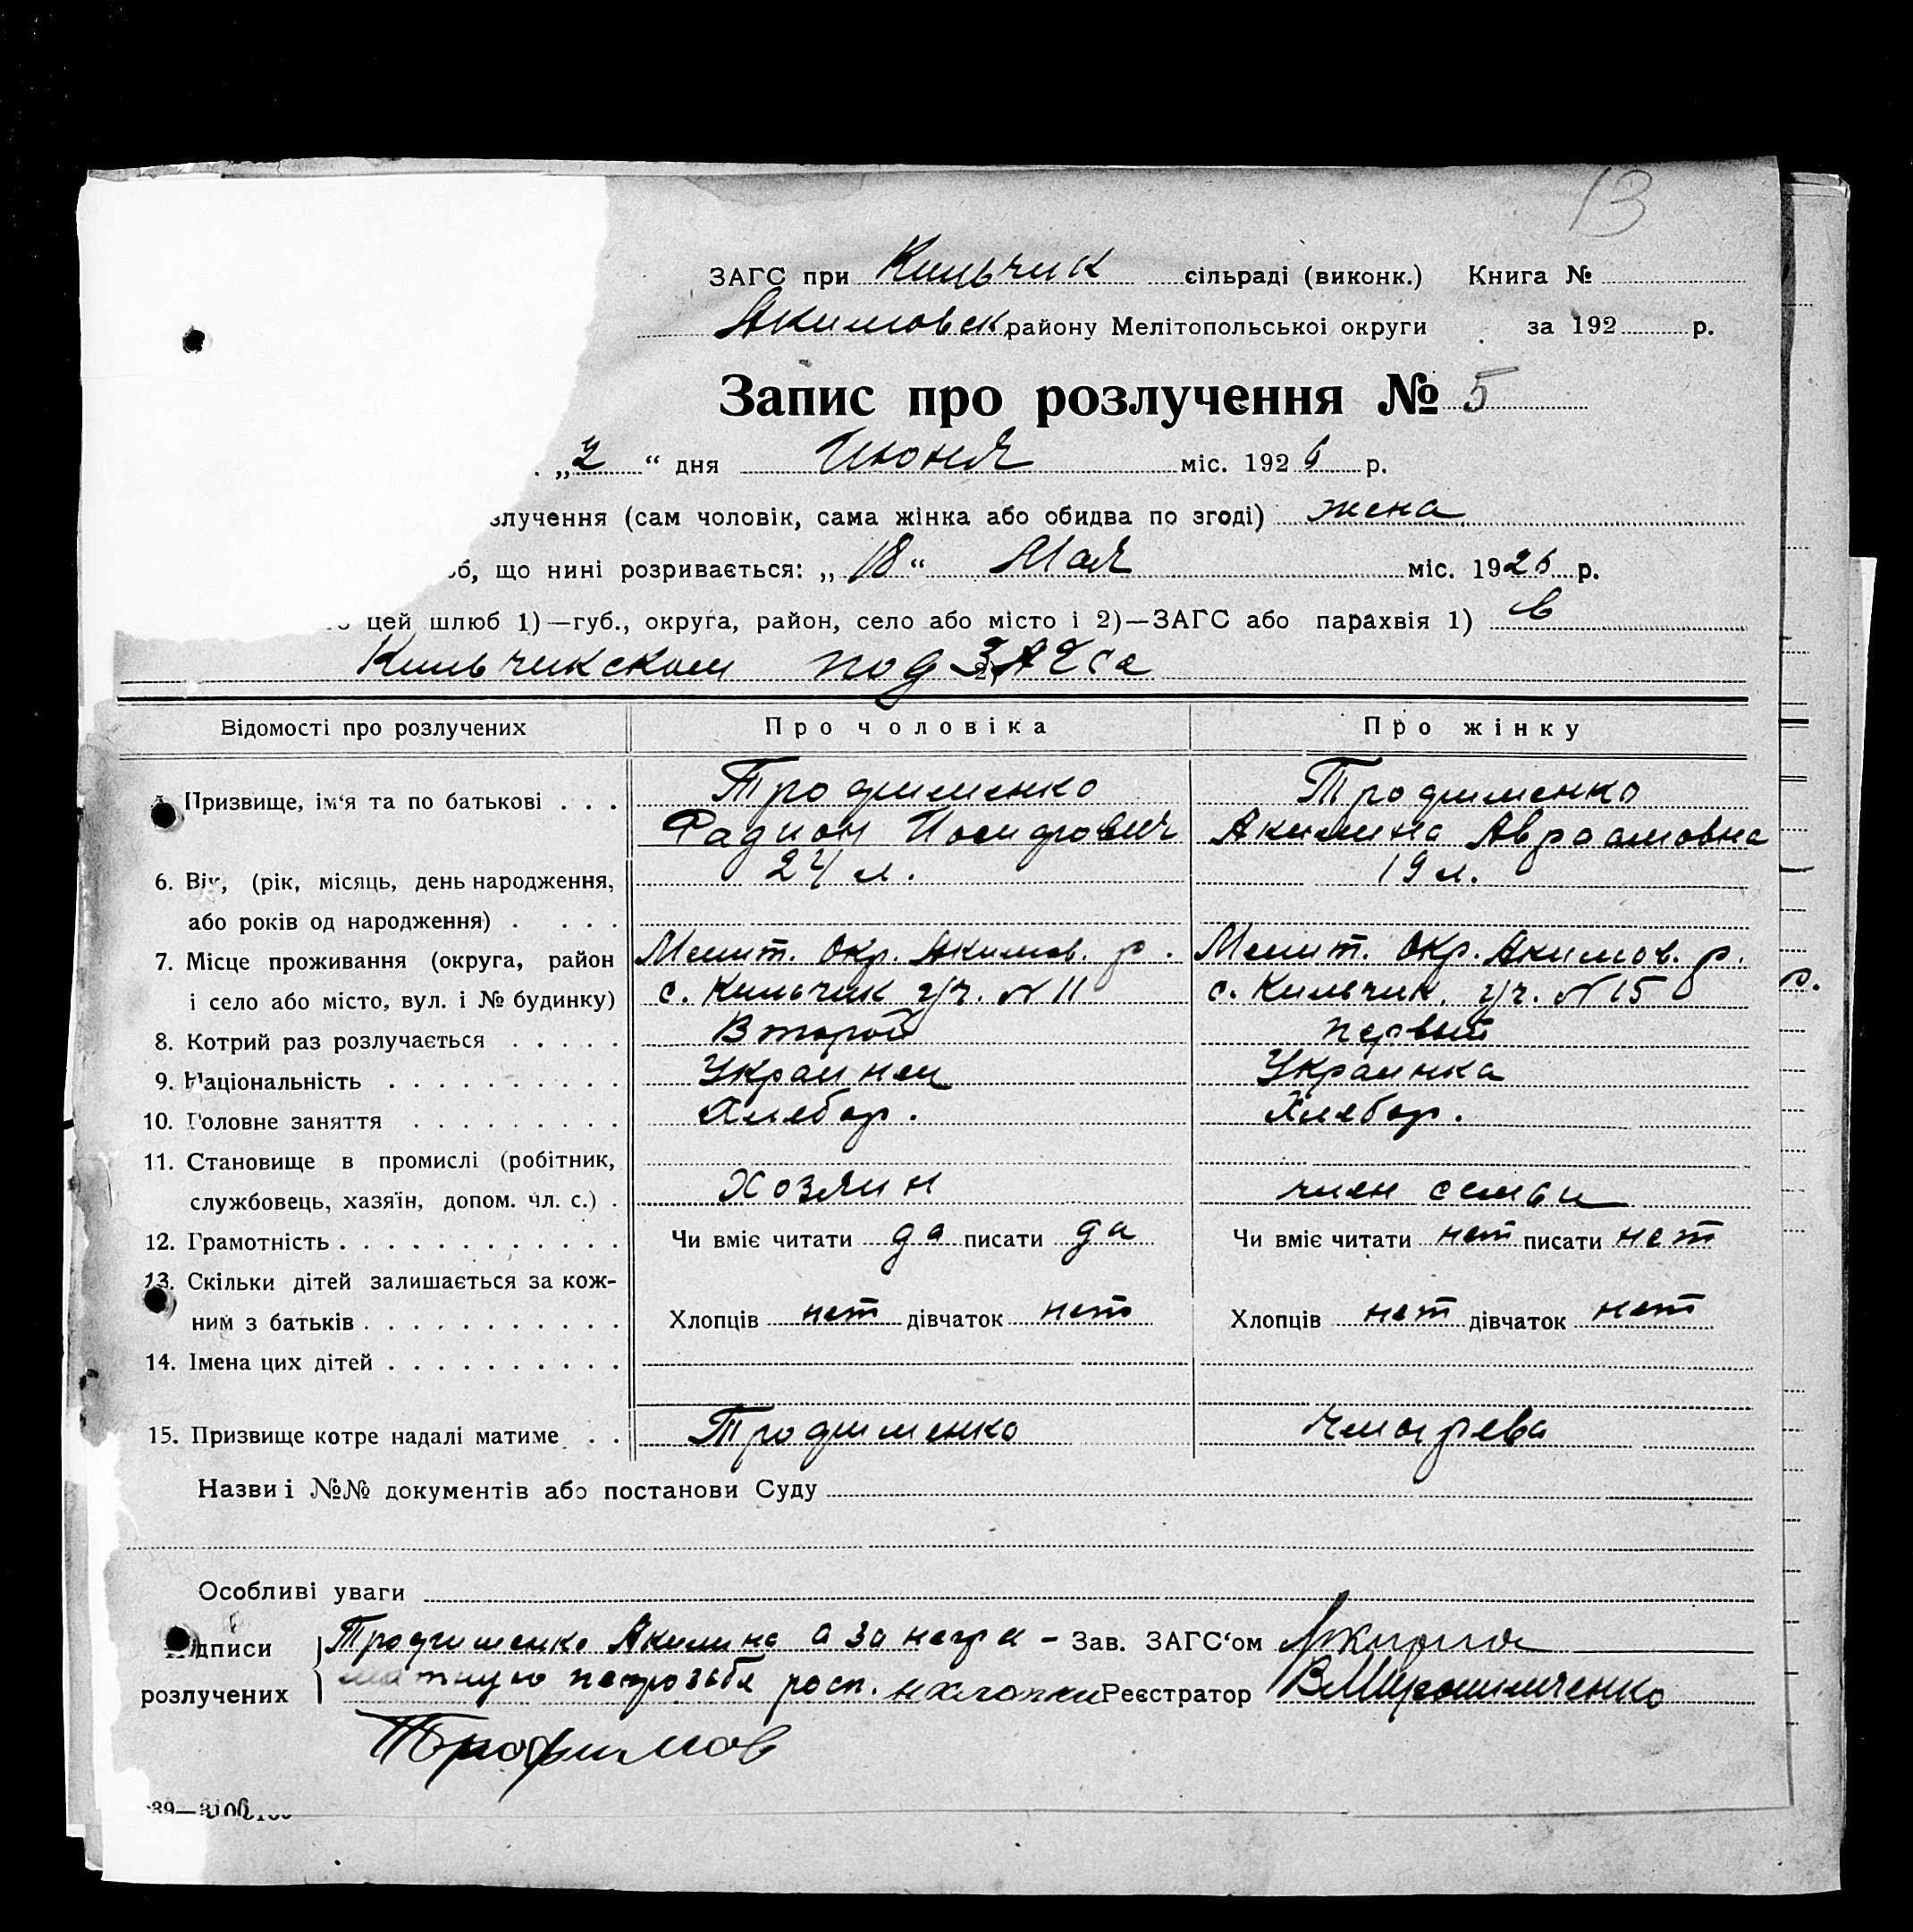 13
ЗАГС при Кильчик сільраді (виконк.) Книга №
Акимовск району Мелітопольської округи за 192 р.
Запис про розлучення № 5
„2“ дня Июня міс. 1926 р.
злучення (сам чоловік, сама жінка або обидва по згоді) жена
об, що нині розривається: „18“ Мая міс. 1926 р.
цей шлюб 1)—губ., округа, район, село або місто і 2)—ЗАГС або парахвія 1) в
Кильчикском под ЗАГСа
Відомості про розлучених Про чоловіка Про жінку
Призвище, ім‘я та по батькові . . . Трофименко Трофименко
Фадион Иосифович Акилина Авраамовна
6. Вік, (рік, місяць, день народження, 24 л. 19 л.
або років од народження) . . . .
7. Місце проживання (округа, район Мелит. Окр. Акимов. р. Мелит. Окр. Акимов. р.
і село або місто, вул. і № будинку) с. Кильчик уч. № 11 с. Кильчик. уч. № 15
8. Котрий раз розлучається . . . . . Второй первый
9. Національність . . . . . . . . . . Украинец Украинка
10. Головне заняття . . . . . . . . . Хлебор. Хлебор.
11. Становище в промислі (робітник,
службовець, хазяїн, допом. чл. с.) . Хозяин член семьи
12. Грамотність . . . . . . . . . . . . Чи вміє читати да писати да Чи вміє читати нет писати нет
13. Скільки дітей залишається за кож-
ним з батьків . . . . . . . . . . . Хлопців нет дівчаток нет Хлопців нет дівчаток нет
14. Імена цих дітей . . . . . . . . . .
15. Призвище котре надалі матиме . . Трофименко
Назви і №№ документів або постанови Суду
Особливі уваги
дписи Трофименко Акилина а за негра- Зав. ЗАГС‘ом
розлучених мотную росп. Реєстратор ВМирошниченко
Трофимов